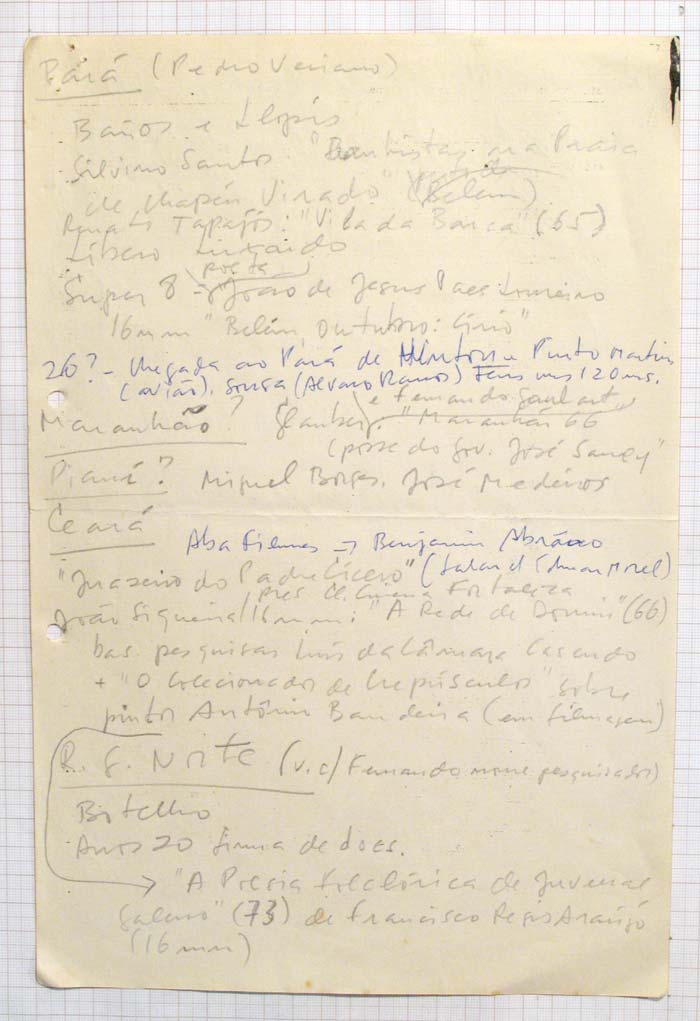 Pará (Pedro Veriano)
Baños e Llopis
Silvino Santos: "Banhistas na Praia
de Chapéu Virado" (Belém)
Renato Tapajós: "Vila da Barca" (65)
Líbero Luxardo
poeta
Super 8 - João de Jesus Paes Loureiro
16mm "Belém, outubro: Círio"
26? - Chegada ao Pará de Hinton e Pinto Martins
(avião). Sousa (Álvaro Ramos) tem uns 120 ms.
e Fernando Goulart
Maranhão? Glauber: "Maranhão 66"
(posse do Gov. José Sarney"
Piauí? Miguel Borges. José Medeiros
Ceará
Aba Filmes → Benjamin Abraão
"Juazeiro do Padre Cícero" (falar c/ Edmar Morel)
pres. Cl. Cinema Fortaleza
João Siqueira/16mm: "A Rede de Dormir" (66)
bas. pesquisas Luís da Câmara Cascudo
+ "O Colecionador de Crepúsculos" sobre
pintor Antônio Bandeira (em filmagem)
R. G. Norte (v. c/ Fernando nome pesquisador)
Botelho
Anos 20 firma de docs.
→ "A Poesia Folclórica de Juvenal
Galeno" (73) de Francisco Regis Araújo
(16mm)